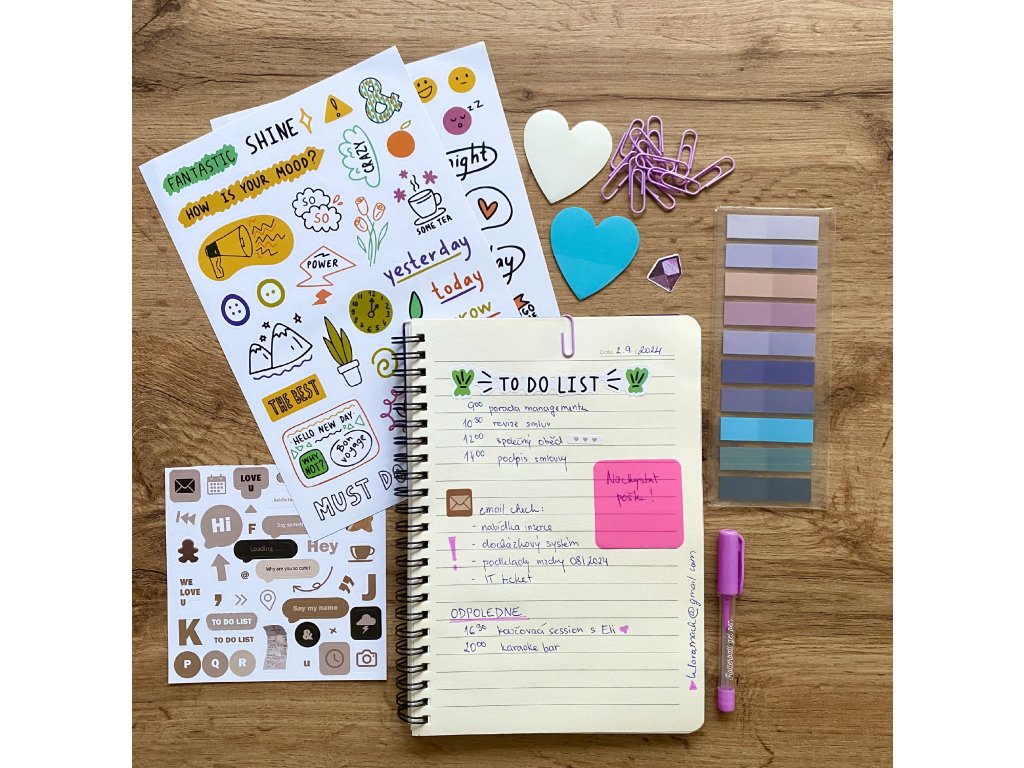 FANTASTIC
SHINE
&
CRAZY
HOW IS YOUR MOOD?
SO
SO
POWER
SOME TEA
yesterday
today
THE BEST
HELLO NEW DAY
WHY NOT?
Bon
voyage
MUST DO
zz
night
LOVE
U
Hi
F
Say someti
Loading.....
Hey
Why are you so cute?
@
WE
LOVE
U
J
Say my name
K
TO DO LIST
TO DO LIST
&
×
P
Q
R
u
Date: 2.9./2024
TO DO LIST
9:00 porada managementu
10:30 revize smluv
12:00 společný oběd
14:00 podpis smlouvy
Nachystat
poštu!
email check:
- nabídka inzerce
- docházkový systém
- podklady mzdy 08/2024
- IT ticket
!
ODPOLEDNE
16:30 koučovací session s Eli
20:00 karaoke bar
@gmail.com